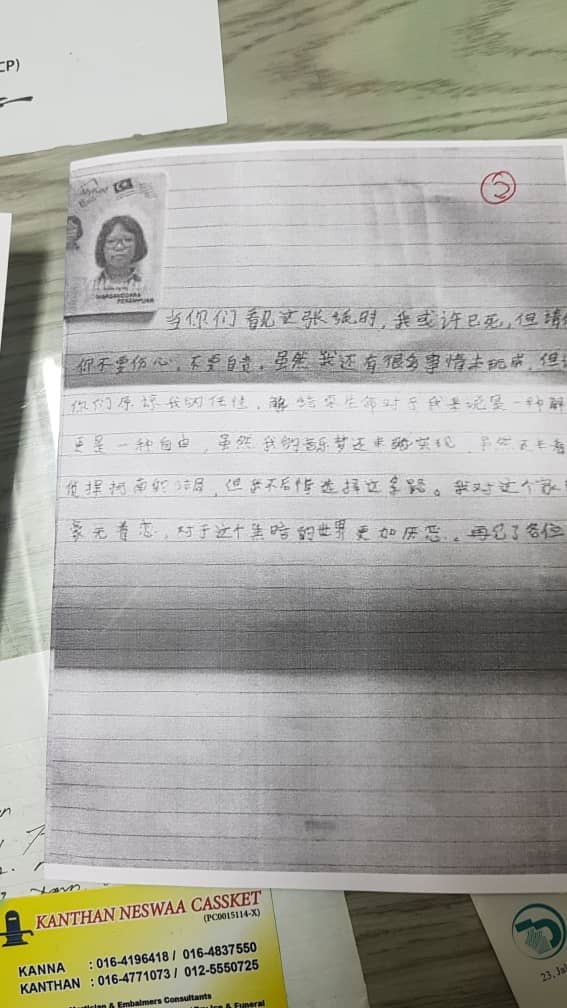 CP)
2
WARGANEGARA
PEREMPUAN
当你们看见这张纸时,我或许已死,但请你
们不要伤心,不要自责。虽然我还有很多事情未完成,但
你们原谅我的任性,结束生命对于我来说是一种解
更是一种自由,虽然我的音乐梦还未能实现,虽然还未看
侦探柯南的结局,但我不后悔选择这条路。我对这个家
无眷恋,对于这个黑暗的世界更加厌恶。再见了各位
KANTHAN NESWAA CASSKET
(PC0015114-X)
KANNA : 016-4196418 / 016-4837550
KANTHAN : 016-4771073 / 012-5550725
& Embalmers Consultants
& Funeral
23, Jal